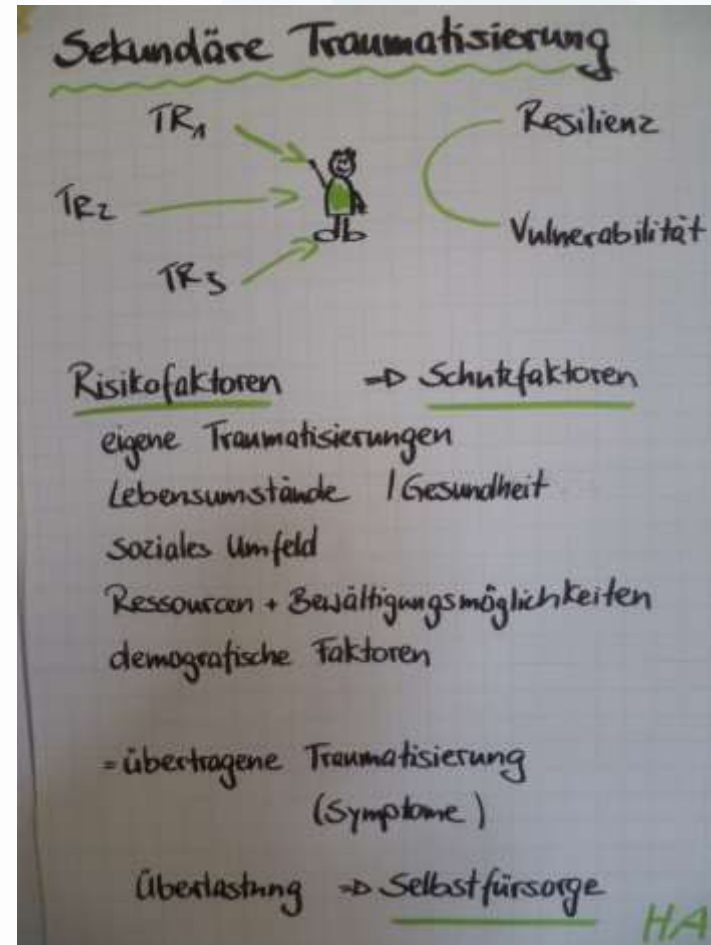 Sekundäre Traumatisierung
TR1
Resilienz
TR2
Vulnerabilität
TR3
Risikofaktoren => Schutzfaktoren
eigene Traumatisierungen
Lebensumstände / Gesundheit
soziales Umfeld
Ressourcen + Bewältigungsmöglichkeiten
demografische Faktoren
= übertragene Traumatisierung
(Symptome)
Überlastung => Selbstfürsorge
HA